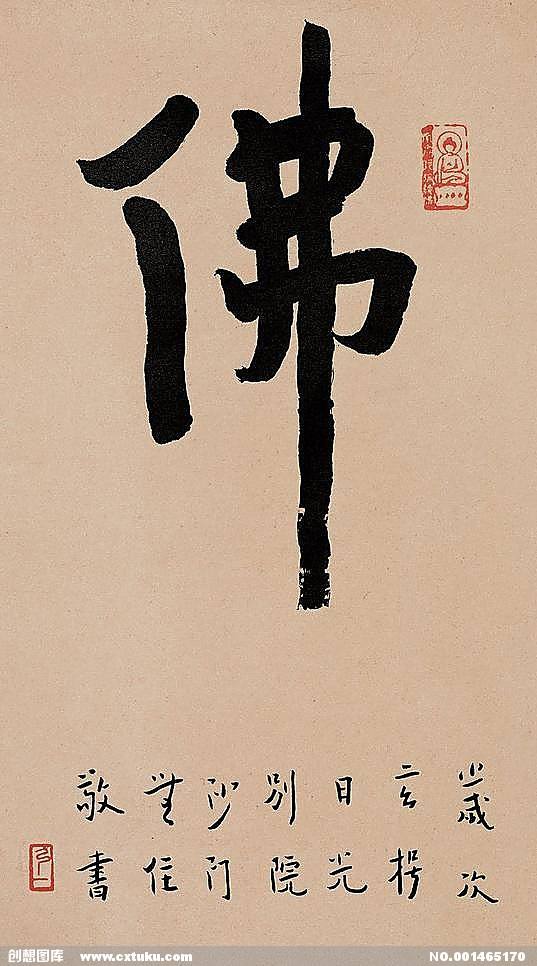 佛
歲次
玄枵
日光
別院
沙門
無住
敬書
弘一
创想图库 www.cxtuku.com
NO.001465170